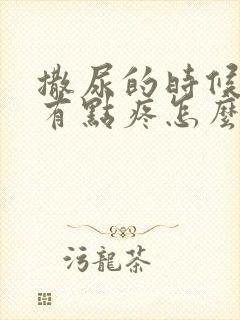 撒尿的時候
有點疼怎麼
污龍茶